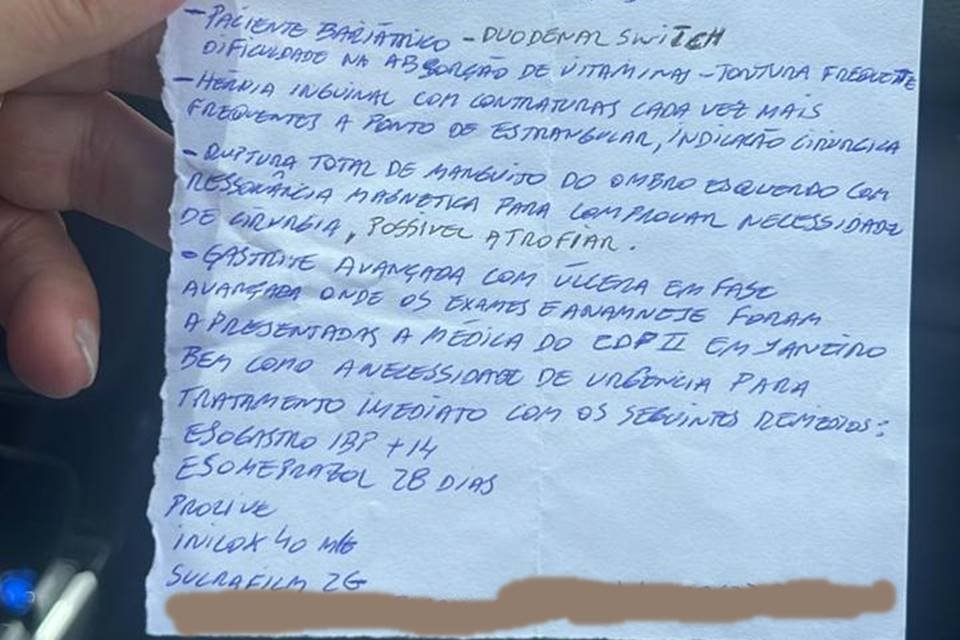 - PACIENTE BARIÁTRICO - DUODENAL SWITCH
DIFICULDADE NA ABSORÇÃO DE VITAMINAS - TONTURA FREQUETTE
- HÉRNIA INGUINAL COM CONTRATURAS CADA VEZ MAIS
FREQUENTES A PONTO DE ESTRANGULAR, INDICAÇÃO CIRURGICA
- RUPTURA TOTAL DE MANGUITO DO OMBRO ESQUERDO COM
RESSONÂNCIA MAGNETICA PARA COMPROVAR NECESSIDADE
DE CIRURGIA, POSSIVEL ATROFIAR.
- GASTRITE AVANÇADA COM ÚLCERA EM FASE
AVANÇADA ONDE OS EXAMES E ANAMNESE FORAM
APRESENTADAS A MÉDICA DO CDP II EM JANEIRO
BEM COMO A NECESSIDADE DE URGENCIA PARA
TRATAMENTO IMEDIATO COM OS SEGUINTES REMEDIOS:
ESOGASTRO IBP + 14
ESOMEPRAZOL 28 DIAS
PROLIVE
INILOX 40 MG
SUCRAFILM 2G